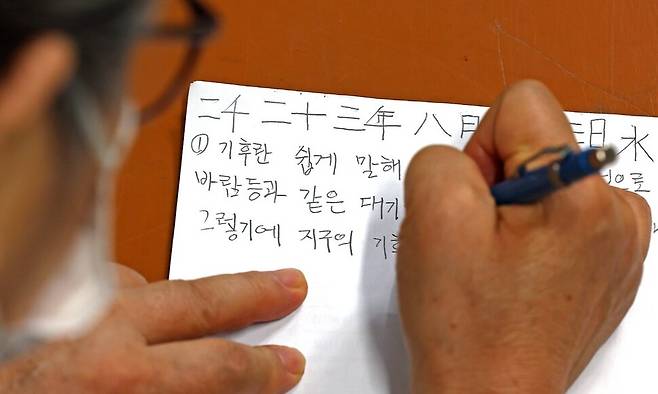 二千 二十 三年 八月 日 水
① 기후란 쉽게 말해 적으로
바람등과 같은 대기
그렇기에 지구의 기후